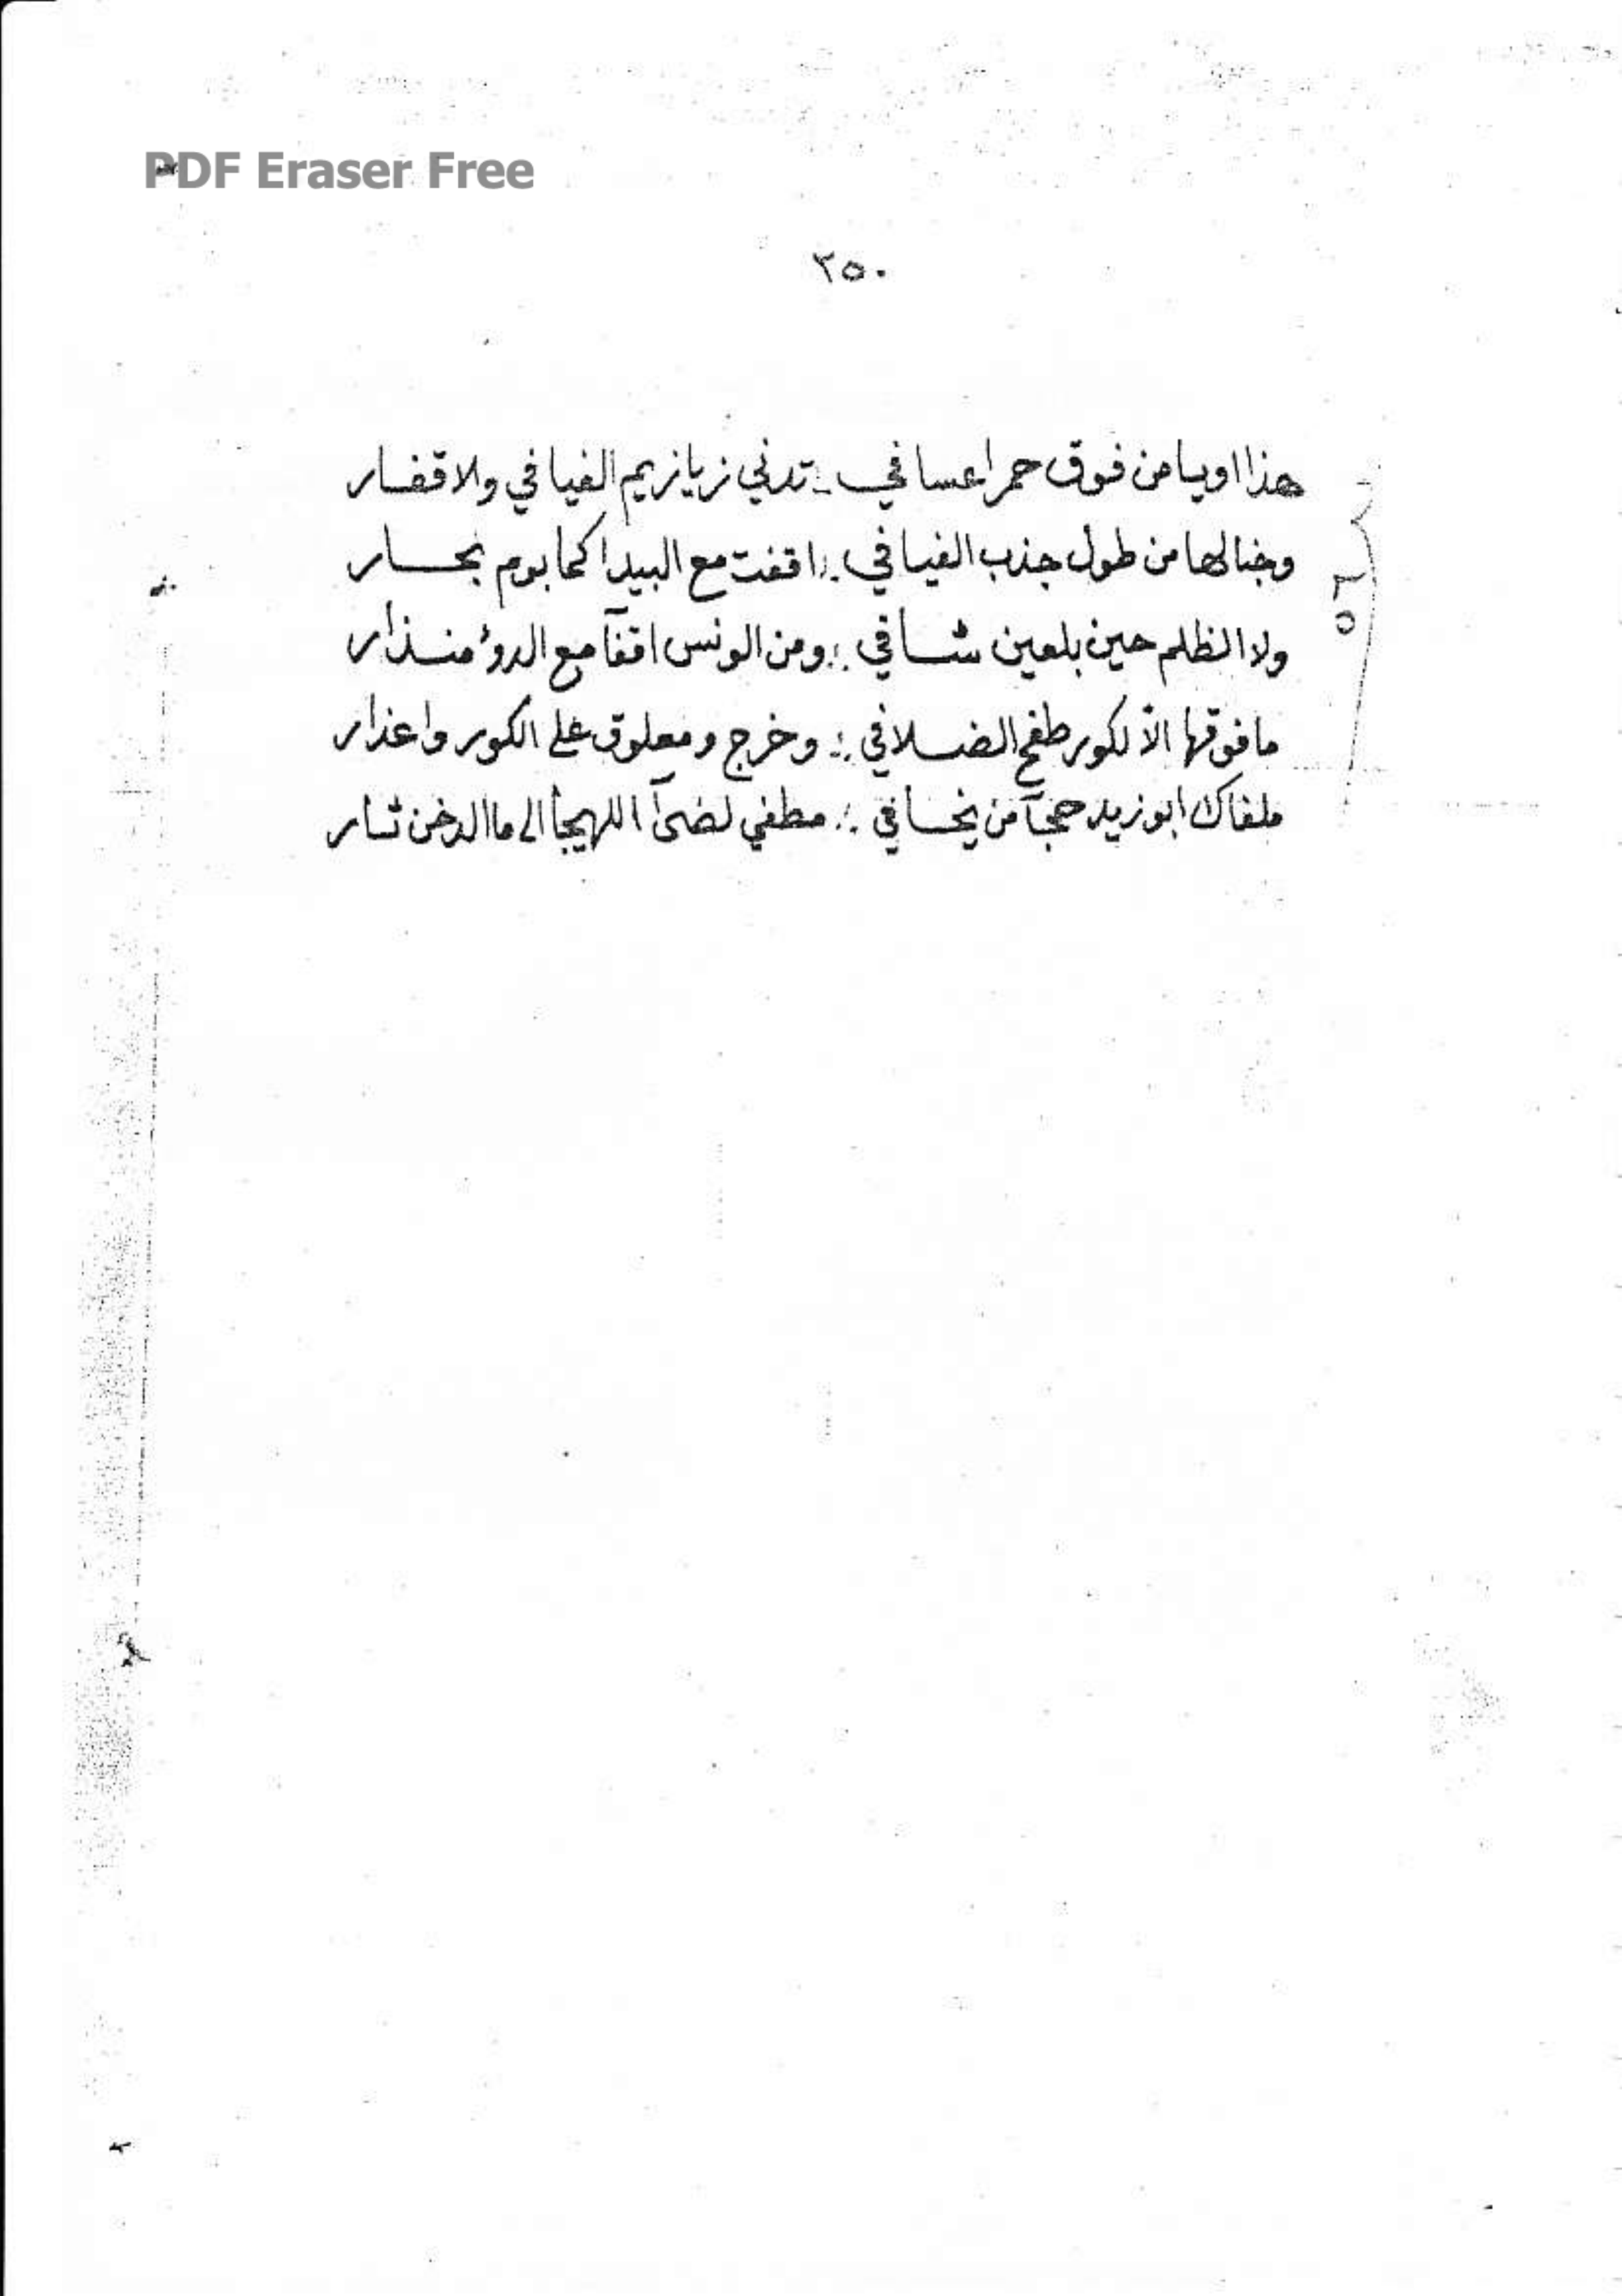 PDF Eraser Free
٢٥٠
هذا اويا من فوق حمرا عسافي ∴ تدني زيازيم الفيافي ولاقفار
وجنالها من طول جذب الفيافي ∴ اقفت مع البيدا كما بوم بحار
ولا الظلم حين بلعين شافي ∴ ومن الونس اقفآ مع الدؤ منذار
ما فوقها الا لكور طفح الضلافي ∴ وخرج ومعلوق على الكور واعذار
ملفاك ابو زيد حجآ من يخافي ∴ مطفي لضىآ اللهيجا الى ما الدخن ثار